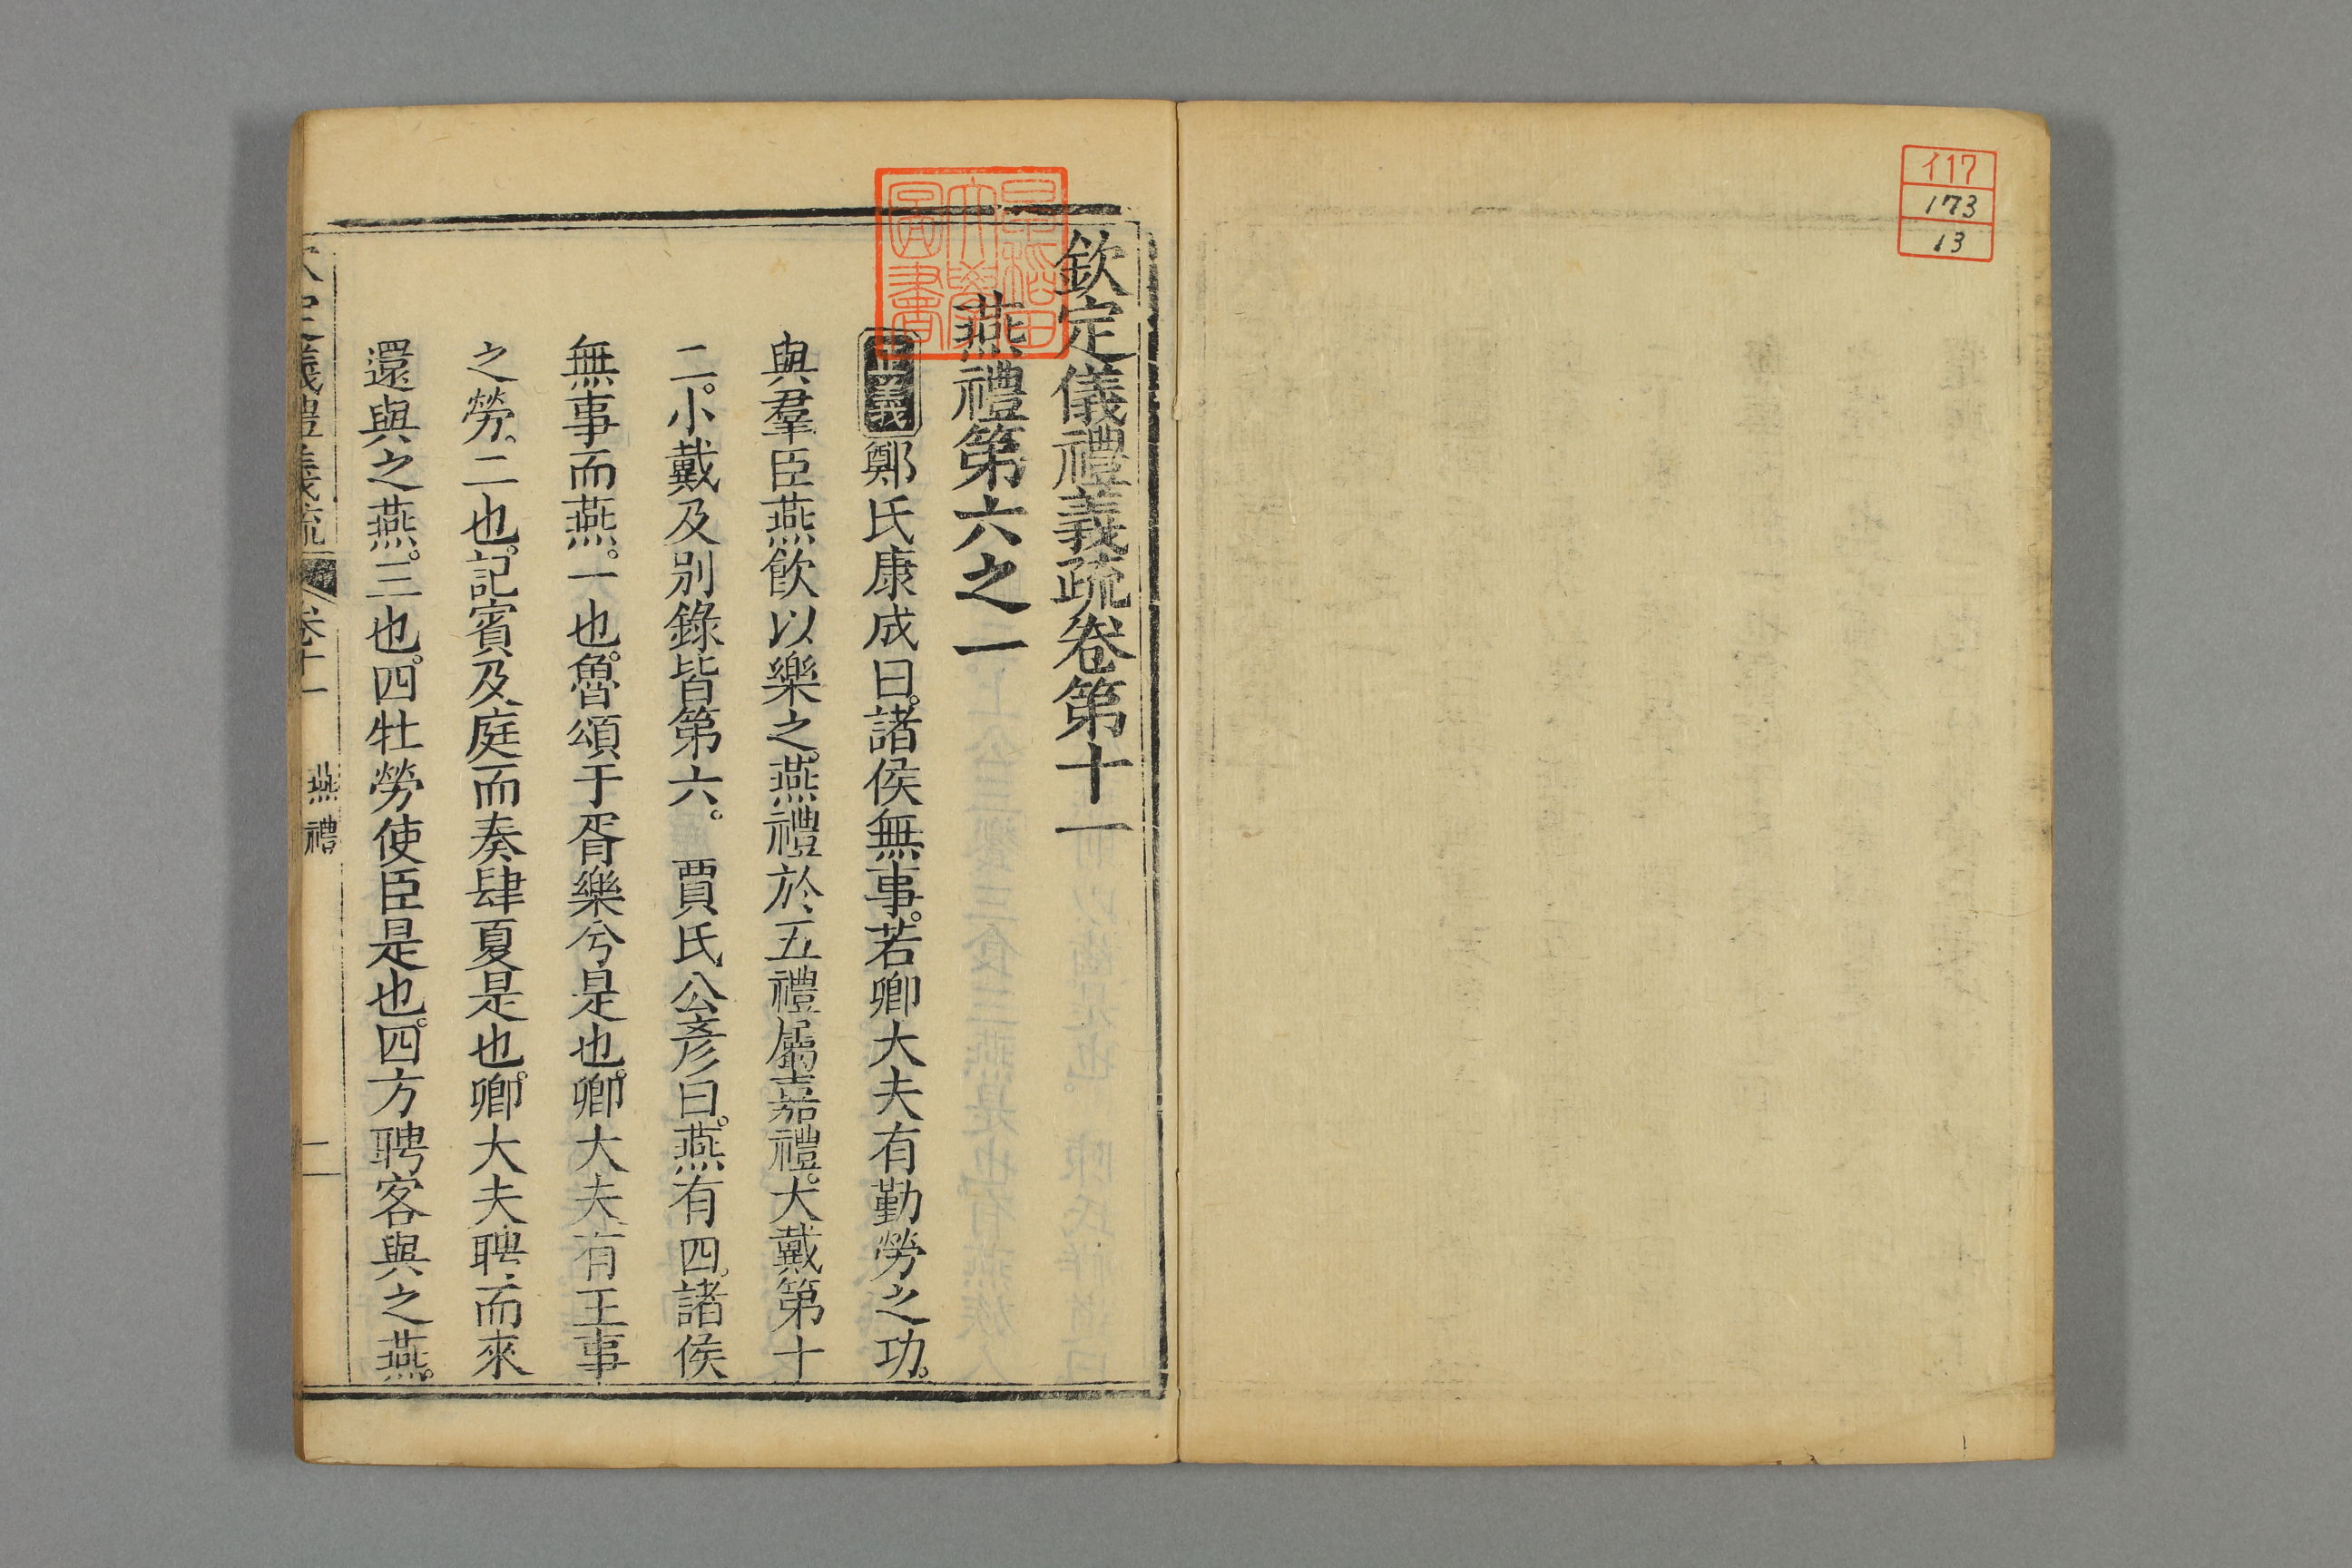 イ17
173
13
早稲田大學圖書
欽定儀禮義疏卷第十一
燕禮第六之一
正義鄭氏康成曰。諸侯無事。若卿大夫有勤勞之功。
與羣臣燕飲以樂之。燕禮於五禮屬嘉禮。大戴第十
二。小戴及別錄皆第六。 賈氏公彥曰。燕有四。諸侯
無事而燕。一也。魯頌于胥樂兮是也。卿大夫有王事
之勞、二也。記賓及庭而奏肆夏是也。卿大夫聘而來
還與之燕。三也。四牡勞使臣是也。四方聘客與之燕。
欽定儀禮義疏 卷十一 燕禮 一